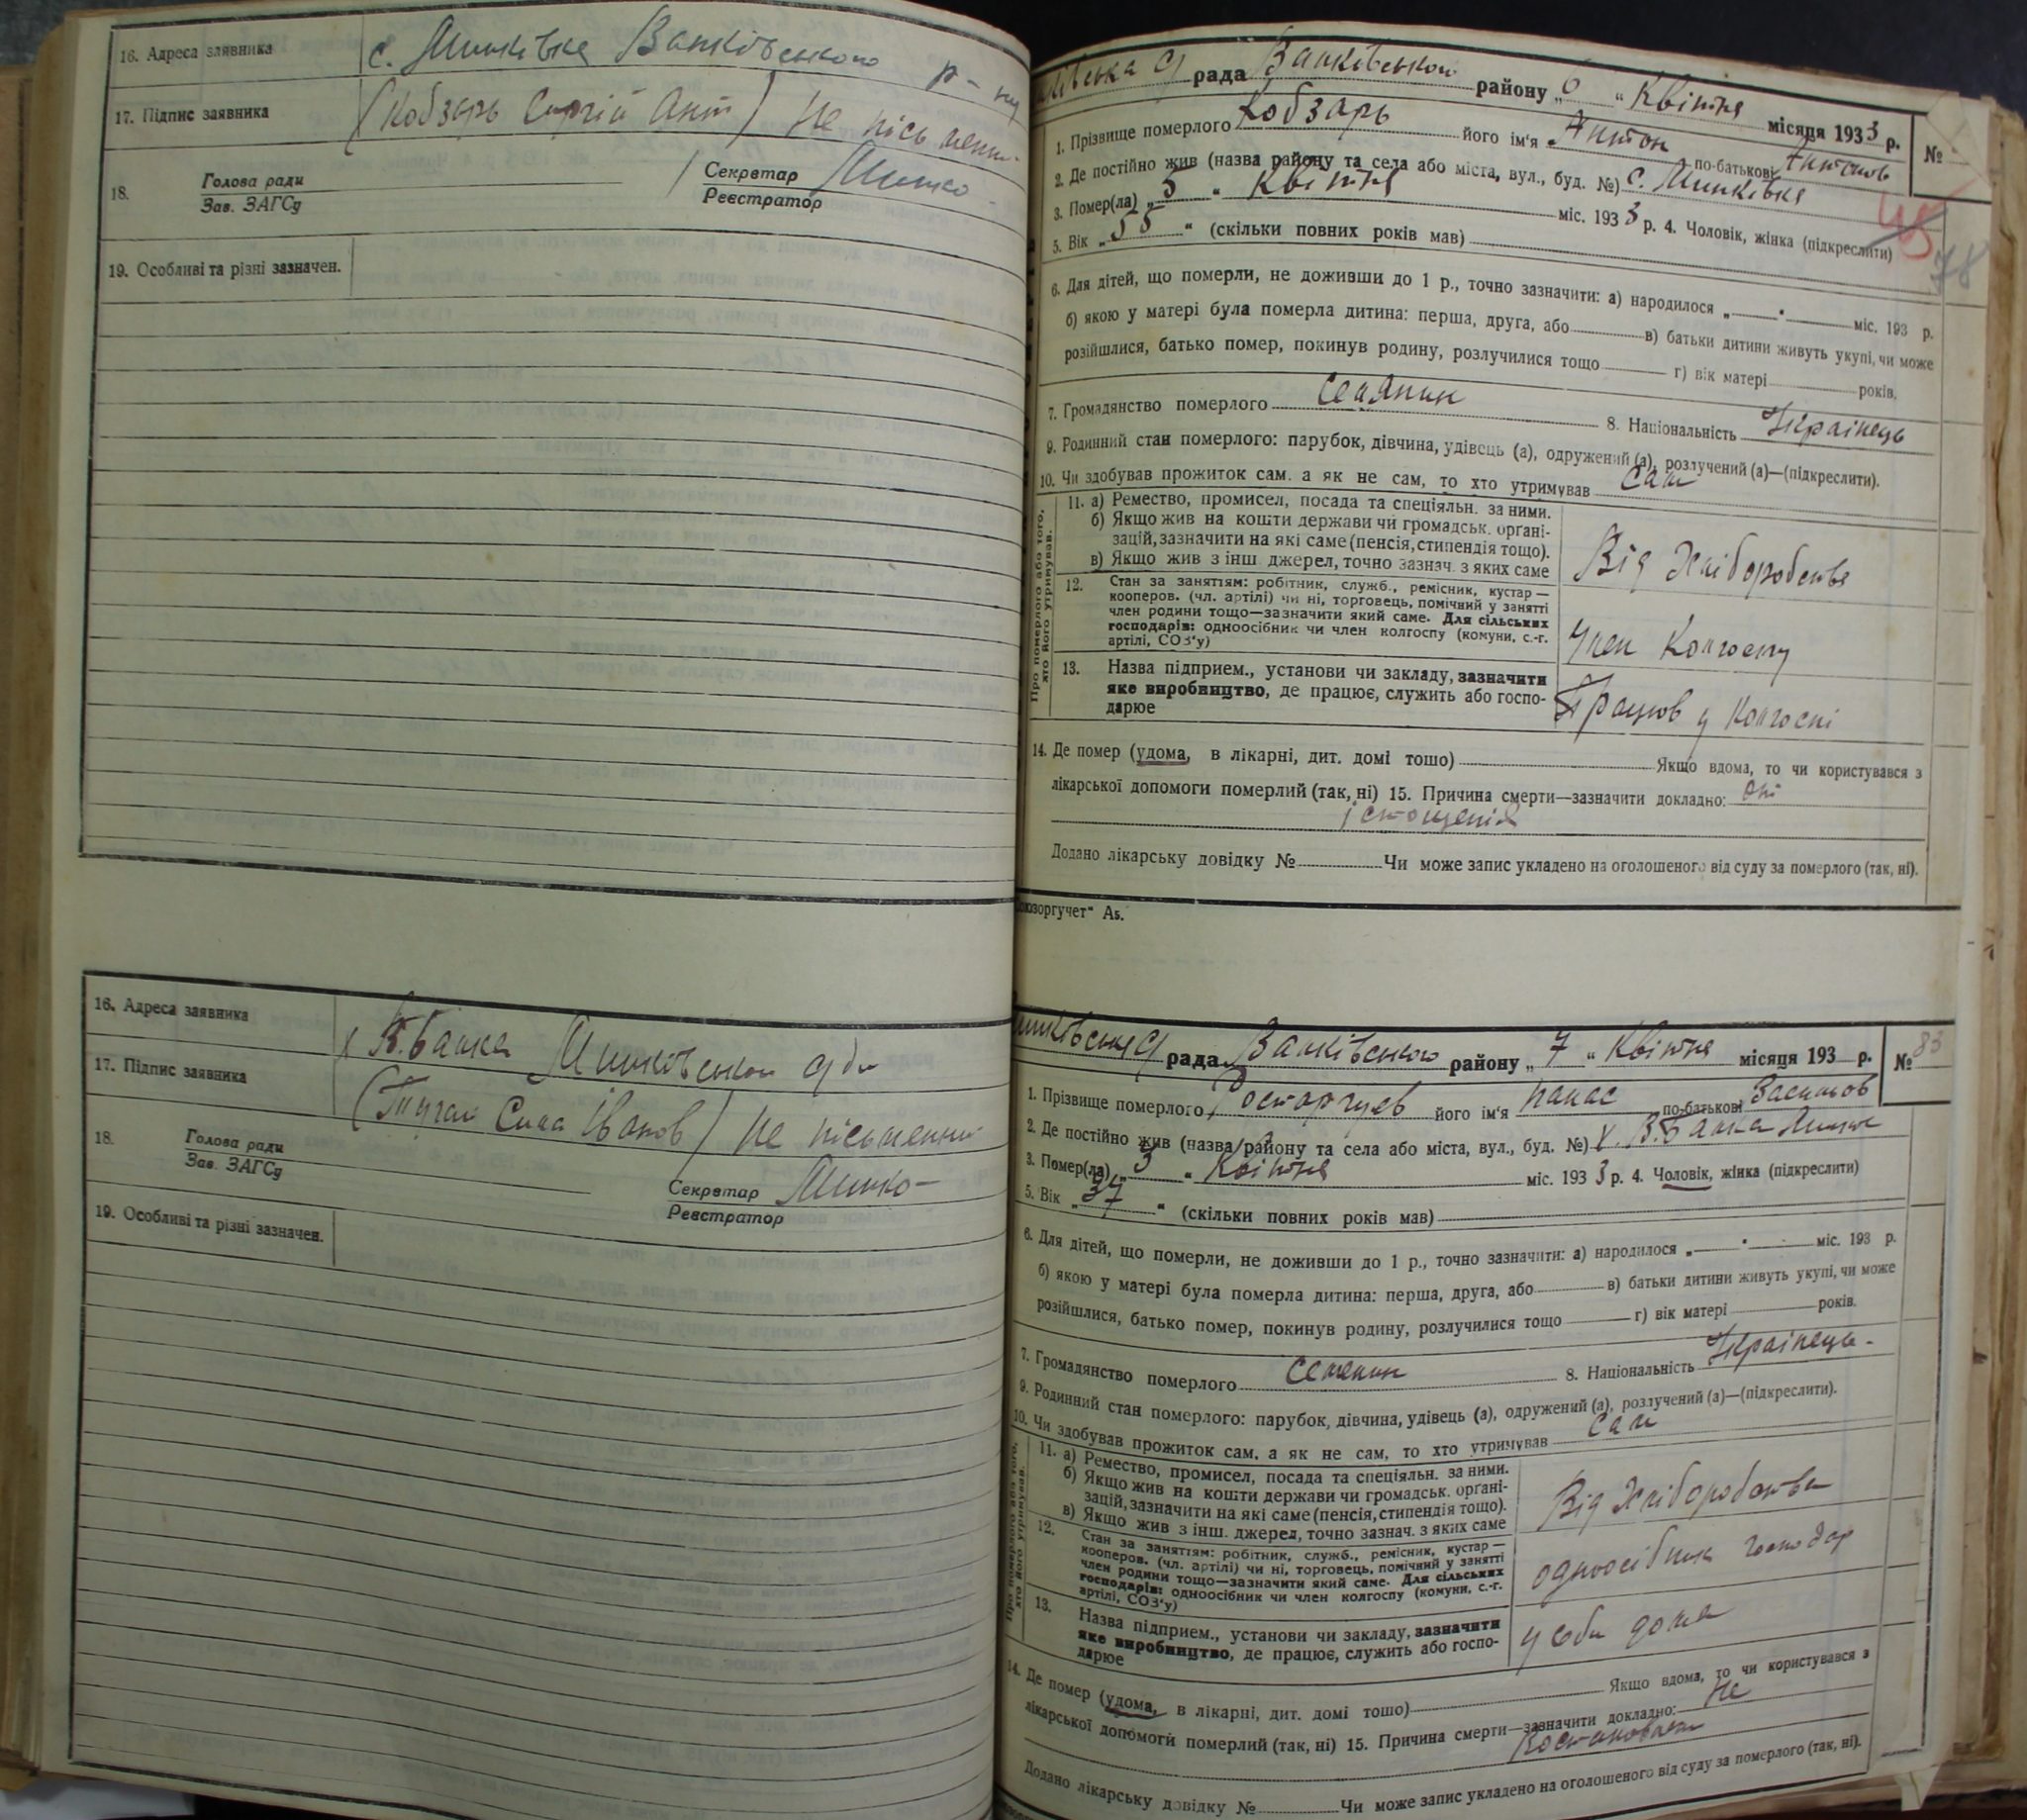 16. Адреса заявника с. Минківка Валківського р-ну
17. Підпис заявника (Кобзарь Сергій Ант) Не письменн.
18. Голова ради
Зав. ЗАГСу
Секретар Минко
Реєстратор
19. Особливі та різні зазначен.
16. Адреса заявника х В.Балка Минківської с/ди
17. Підпис заявника (Тугай Сила Іванов) Не письменний
18. Голова ради
Зав. ЗАГСу
Секретар Минко
Реєстратор
19. Особливі та різні зазначен.
рада Валківського району „6“ Квітня місяця 1933 р. №
1. Прізвище померлого Кобзарь його ім'я Антон по-батькові Антонов
2. Де постійно жив (назва району та села або міста, вул., буд. №) с. Минківка
3. Помер(ла) „5“ Квітня міс. 1933 р. 4. Чоловік, жінка (підкреслити)
45
78
5. Вік „55“ (скільки повних років мав)
6. Для дітей, що померли, не доживши до 1 р., точно зазначити: а) народилося „ “ міс. 193 р.
б) якою у матері була померла дитина: перша, друга, або в) батьки дитини живуть укупі, чи може
розійшлися, батько помер, покинув родину, розлучилися тощо г) вік матері років.
7. Громадянство померлого Селянин 8. Національність Українець
9. Родинний стан померлого: парубок, дівчина, удівець (а), одружений (а), розлучений (а)—(підкреслити).
10. Чи здобував прожиток сам, а як не сам, то хто утримував Сам
Про померлого або того, хто його утримував.
11. а) Ремество, промисел, посада та спеціяльн. за ними.
б) Якщо жив на кошти держави чи громадськ. орґані-
зацій, зазначити на які саме (пенсія, стипендія тощо).
в) Якщо жив з інш. джерел, точно зазнач. з яких саме
Від Хліборобства
12. Стан за заняттям: робітник, служб., ремісник, кустар—
кооперов. (чл. артілі) чи ні, торговець, помічний у занятті
член родини тощо—зазначити який саме. Для сільських
господарів: одноосібник чи член колгоспу (комуни, с.-г.
артілі, СОЗ'у)
Член Колгоспу
13. Назва підприєм., установи чи закладу, зазначити
яке виробництво, де працює, служить або госпо-
дарює
Працюв у Колгоспі
14. Де помер (удома, в лікарні, дит. домі тошо) Якщо вдома, то чи користувався з
лікарської допомоги померлий (так, ні) 15. Причина смерти—зазначити докладно: От
істощенія
Додано лікарську довідку № Чи може запис укладено на оголошеного від суду за померлого (так, ні).
юзоргучет" А5.
Минківська с/ рада Валківського району „7“ Квітня місяця 193 р. № 83
1. Прізвище померлого Росторгуєв його ім'я Панас по-батькові
2. Де постійно жив (назва району та села або міста, вул., буд. №) х. В.Балка
3. Помер(ла) „3“ Квітня міс. 1933 р. 4. Чоловік, жінка (підкреслити)
5. Вік „37“ (скільки повних років мав)
6. Для дітей, що померли, не доживши до 1 р., точно зазначити: а) народилося „ “ міс. 193 р.
б) якою у матері була померла дитина: перша, друга, або в) батьки дитини живуть укупі, чи може
розійшлися, батько помер, покинув родину, розлучилися тощо г) вік матері років.
7. Громадянство померлого Селянин 8. Національність Українець.
9. Родинний стан померлого: парубок, дівчина, удівець (а), одружений (а), розлучений (а)—(підкреслити).
10. Чи здобував прожиток сам, а як не сам, то хто утримував Сам
Про померлого або того, хто його утримував.
11. а) Ремество, промисел, посада та спеціяльн. за ними.
б) Якщо жив на кошти держави чи громадськ. орґані-
зацій, зазначити на які саме (пенсія, стипендія тощо).
в) Якщо жив з інш. джерел, точно зазнач. з яких саме
Від Хліборобства
12. Стан за заняттям: робітник, служб., ремісник, кустар—
кооперов. (чл. артілі) чи ні, торговець, помічний у занятті
член родини тощо—зазначити який саме. Для сільських
господарів: одноосібник чи член колгоспу (комуни, с.-г.
артілі, СОЗ'у)
одноосібник господар
13. Назва підприєм., установи чи закладу, зазначити
яке виробництво, де працює, служить або госпо-
дарює
у себе дома
14. Де помер (удома, в лікарні, дит. домі тошо) Якщо вдома, то чи користувався з
лікарської допомоги померлий (так, ні) 15. Причина смерти—зазначити докладно: Не
Додано лікарську довідку № Чи може запис укладено на оголошеного від суду за померлого (так, ні).